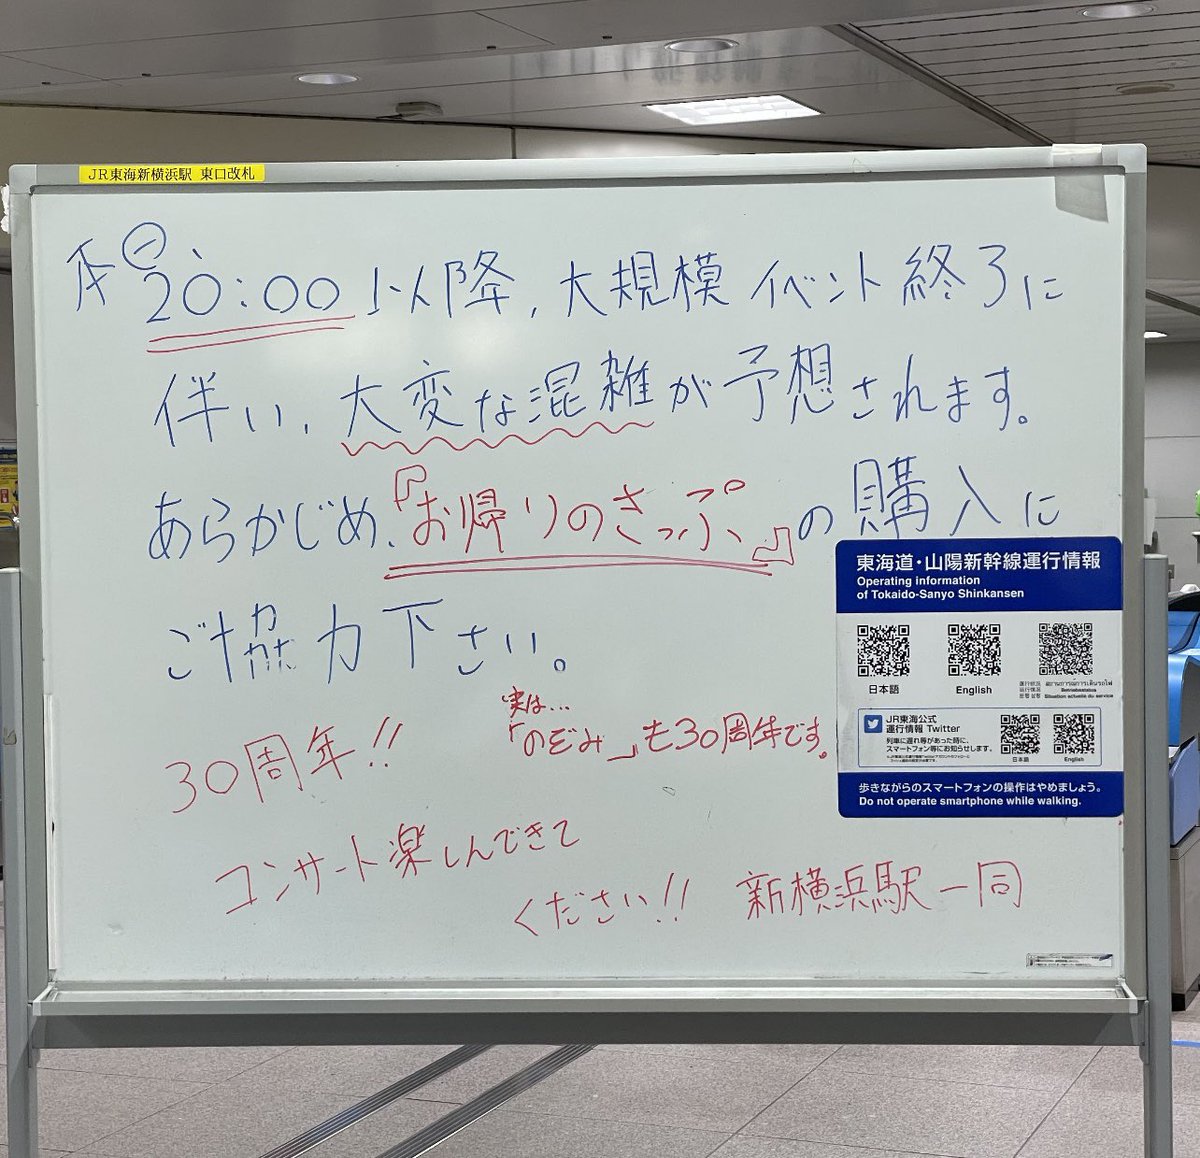 JR東海新横浜駅 東口改札
本日、20:00以降、大規模イベント終了に
伴い、大変な混雑が予想されます。
あらかじめ、『お帰りのきっぷ』の購入に
ご協力下さい。
30周年!!
実は…
「のぞみ」も30周年です。
コンサート楽しんできて
ください!! 新横浜駅一同
東海道・山陽新幹線運行情報
Operating information
of Tokaido-Sanyo Shinkansen
日本語
English
JR東海公式
運行情報 Twitter
列車に遅れ等があった時に、
スマートフォン等にお知らせします。
日本語
English
歩きながらのスマートフォンの操作はやめましょう。
Do not operate smartphone while walking.